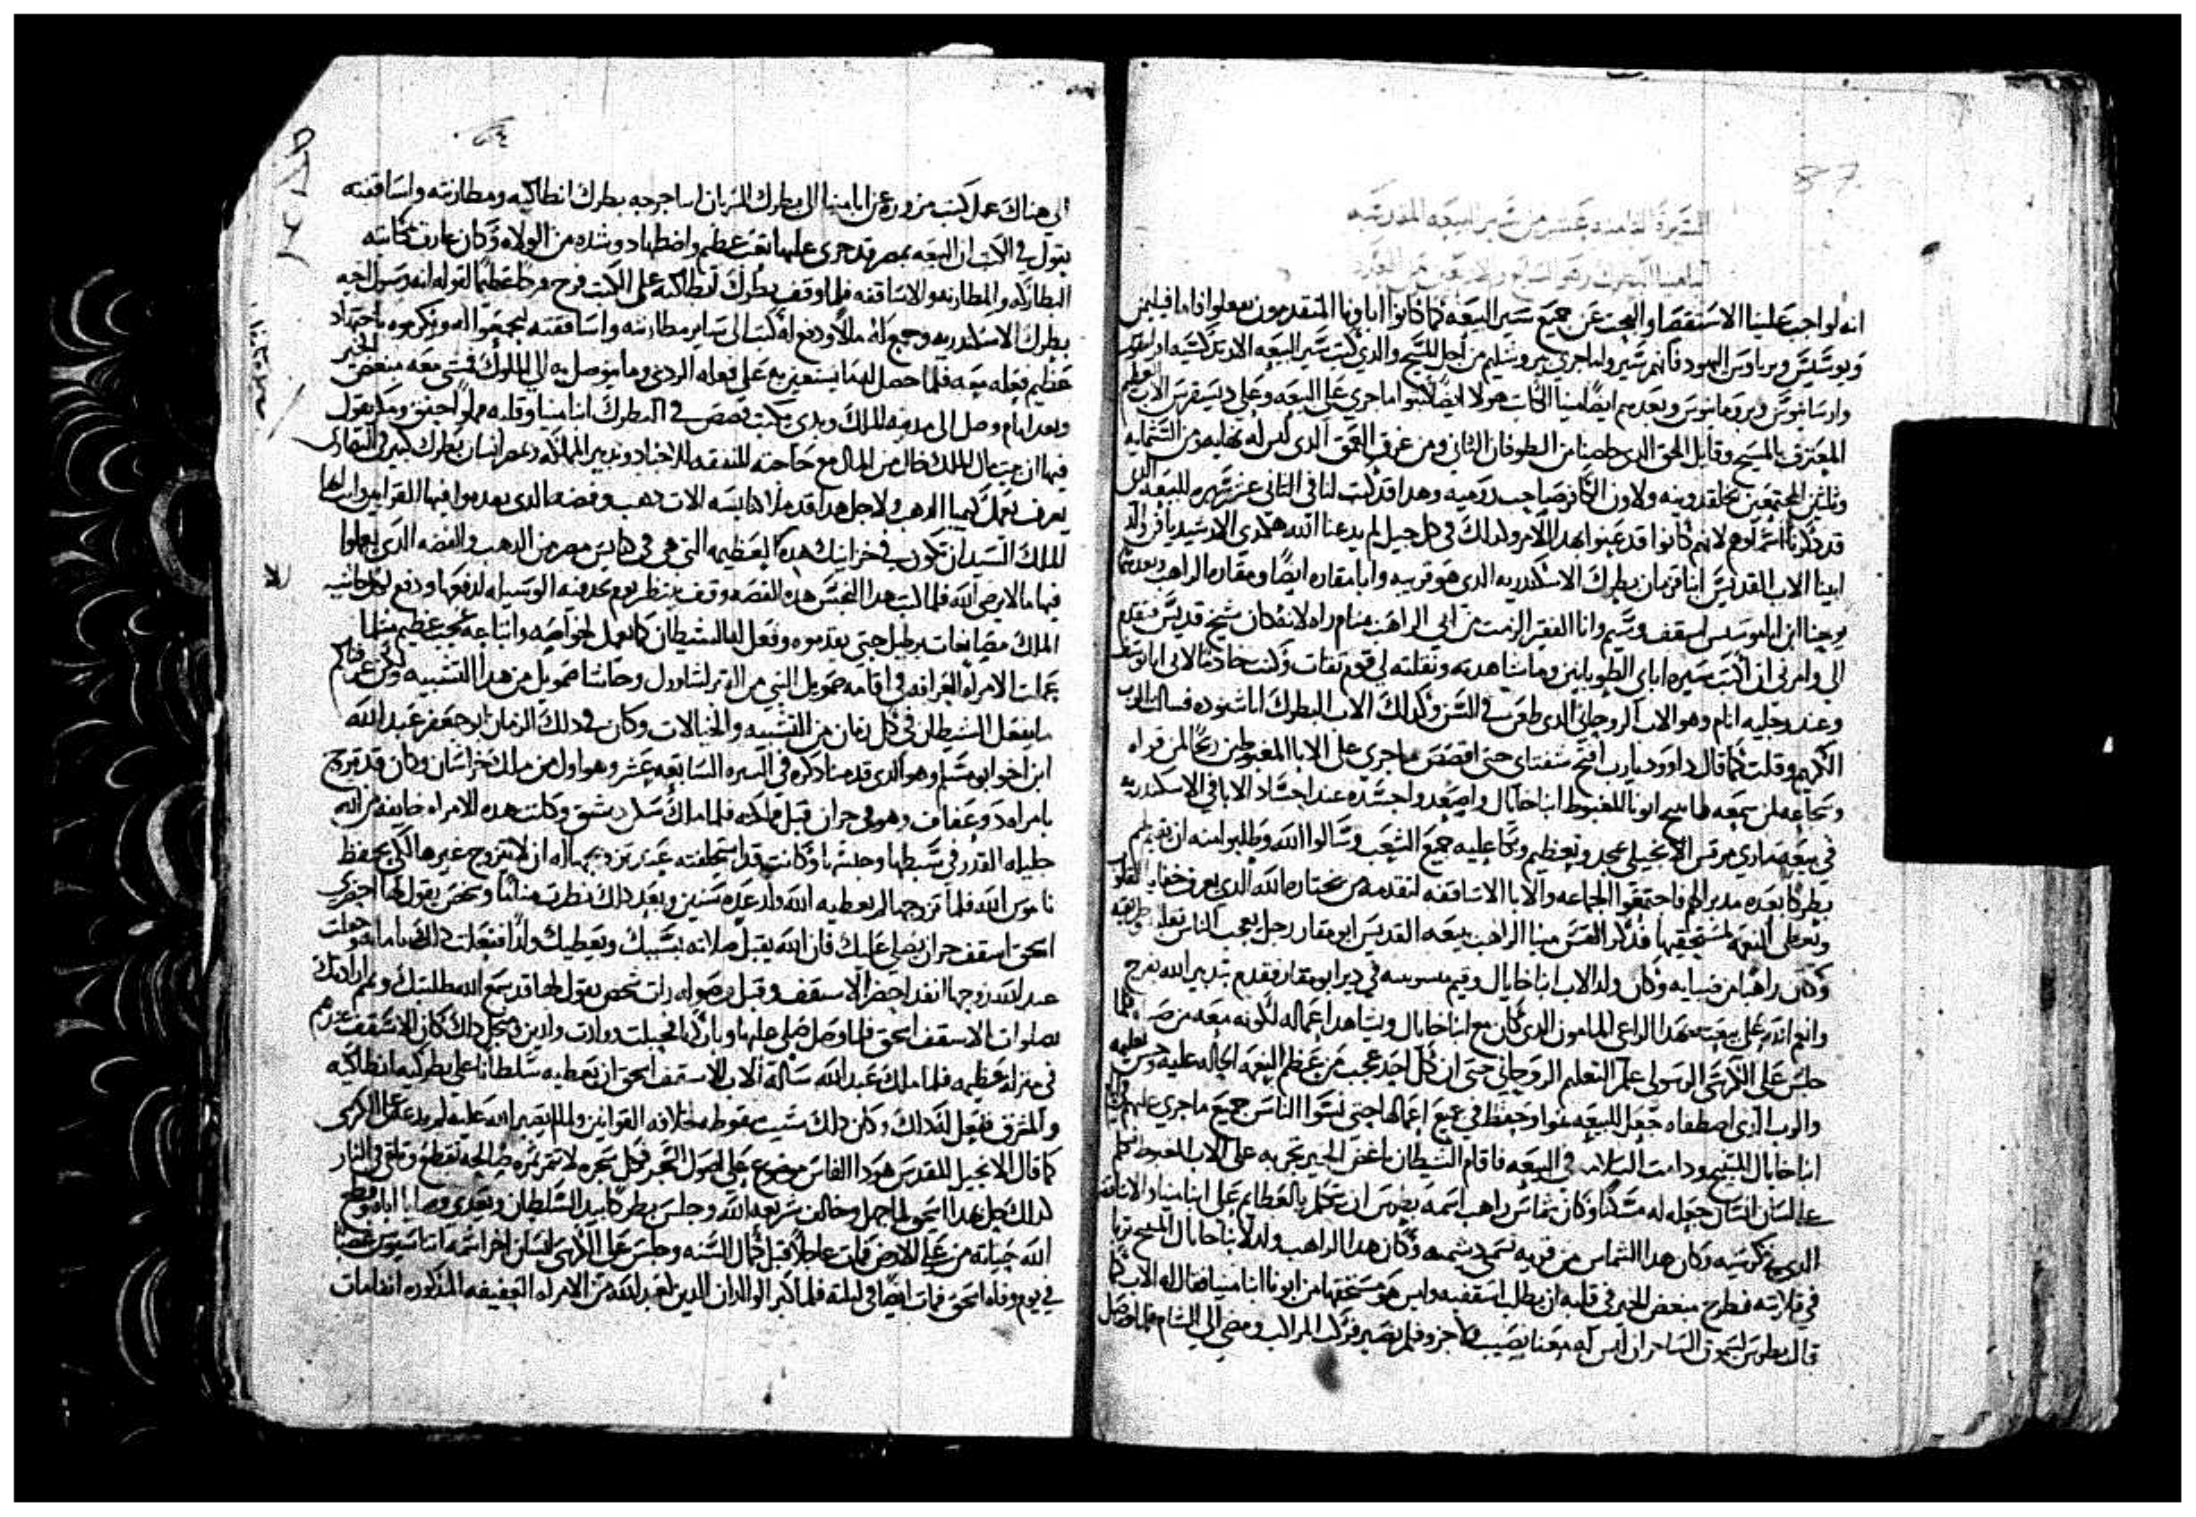 87
السيرة الثامنه عشر من سير البيعه المقدسه
انبا مينا البطرك وهو السابع والاربعين من العدد
انه لواجب علينا الاستقصا والبحث عن جميع سير البيعه كما كانوا اباونا المتقدمون يفعلوا اما فيلمن
ويوستس ويرياوس اليهود فانهم سير ولما جرى بيروشليم من اجل المسيح والذي كتب سير البيعه الاربر كتبته افريقيوس
وارسانيوس وبروماتوس وبعدهم ايضا مينا الكاتب هولا ايضا كتبوا ما جرى على البيعه وعلى ديسقرس الاب العظيم
المعترف بالمسيح وقايل الحق الدي خلصنا من الطوفان التاني ومن غرق العمق الدي ليس له نهايه ومن الستمايه
وتلتين المجتمعين بخلقدونيه ولاون الكافر صاحب روميه وهدا قد كتب لنا في التاني عشر سيره للبيعه الدي
قد دكرنا اسماوهم لانهم كانوا قد عنيوا بهدا الامر ولدلك في كل جيل لم يدعنا الله هكدي الا رشيد يافرن والد
ابينا الاب القديس انبا قزمان بطرك الاسكندريه الدي هو قريبه وابا مقاره ايضا ومقاره الراهب وبعدهما
يوحنا ابن ابوليوس اسقف وسيم وانا الفقير الزمت من ابي الراهب منام راه لانه كان شيخ قديس متقدم
الي وامرني ان اكتب سيره اباي الطوبانيين وما شاهدته ونقلته لي قوم تقات وكنت خادما لابي ابا يوسف
وعند رجليه انام وهو الاب الروحاني الدي طعن في السن وكدلك الاب البطرك ابا شنوده فسالت الرب
الكريم وقلت كما قال داوود يارب افتح شفتاي حتى اقص ما جرى على الابا المغبوطين ربحا لمن قراه
وشجاعه لمن سمعه لما تنيح ابونا المغبوط انبا خايال واصعدوا جسده عند اجساد الابا في الاسكندريه
في بيعه ماري مرقس الانجيلي بمجد وتعظيم وبكا عليه جميع الشعب وسالوا الله وطلبوا منه ان يقيم لهم
بطركا بعده مدبرا لهم فاجتمعوا الجماعه والابا الاساقفه لتقدمه من يختاره الله الدي يعرف خفايا القلوب
وتعطي النعمه لمستحقيها فدكر القس مينا الراهب ببيعه القديس ابو مقار رجل يعجب الناس بفعله وطريقه
وكان راهبا من صبايه وكان ولد الاب انبا خايال وقيم في دير ابو مقار فقدم بتدبير الله بفرح
وانعم الله على بيعته بهدا الراعي المامون الدي كان مع انبا خايال ويشاهد اعماله لكونه معه من صباه فلما
جلس على الكرسي الرسولي علم التعليم الروحاني حتى ان كل احد عجب من عظم النعمه الحاله عليه وحسن تعليمه
والرب الدي اصطفاه جعل للبيعه نموا وحفظ في جميع اعمالها حتى نسوا الناس جميع ما جرى عليهم في ايام
انبا خايال المتنيح ودامت السلامه في البيعه فاقام الشيطان باغض الخير تجربه على الاب المغبوط كما
على لسان انسان جعله له مسكنا وكان شماس راهب اسمه بطرس ان يتكلم بالعظايم على ابنا مينا والاباء
الدي في كرسيه وكان هدا الشماس من قريه تسمى دشميه وكان هدا الراهب ولد لانبا خايال المسيح تربا
في قلايته فطرح مبغض الخير في قلبه ان يطلب اسقفيه وليس هو مستحقها من ابونا انبا مينا فقال له الاب كما
قال بطرس لسيمون الساحر ان ليس له معنا نصيب ولا جزو فلم يصبر فركب المراكب ومضى الى الشام فلما وصل
الى هناك عمل كتب مزوره عن ابا مينا الى بطرك السريان اسمه جرجه بطرك انطاكيه ومطارنته واساقفته
يقول في الكتب ان البيعه بمصر قد جرى عليها تعب عظيم واضطهاد وشده من الولاه وكان عارف بمكاتبه
البطاركه والمطارنه والاساقفه فلما وقف بطرك انطاكيه على الكتب فرح فرحا عظيما لقوله انه رسول اخيه
بطرك الاسكندريه وجمع له مالا ودفع له كتبا الى ساير مطارنته واساقفته ليجمعوا له ويكرموه باجتهاد
عظيم ففعله معه فلما حصل له ما يستعين به على فعله الردي وما يتوصل به الى الملوك فمشى معه مبغض الخير
وبعد ايام وصل الى مدينه الملك وبدي يكتب قصص في البطرك انبا مينا وقلبه مملوا حنق ومكر يقول
فيها ان بيت مال الملك خال من المال مع حاجته للنفقه للاجناد وتدبير المملكه وبمصر انسان بطرك كبير في النصارى
يعرف يعمل كيميا الدهب ولاجل هدا قد ملا كنايسه الات دهب وفضه الدي يقدموا فيها القرابين وايضا
للملك السيد ان تكون في خزاينك هده العظيمه التي هي في كنايس مصر من الدهب والفضه الدي يعملوا
فيها ما لا يرضي الله فلما كتب هدا النجس هده القصه وقف ينتظر يوم يجد فيه الوسيله لدفعها ودفع لكل حاشيه
الملك مصانعات برطيل حتى يقدموه وفعل له الشيطان كما يفعل لخواصه واتباعه عجب عظيم مثلما
عملت الامراه العرافه في اقامه صمويل النبي من القبر لشاوول وحاشا صمويل من هدا التشبيه ولكن عرفناكم
ما يفعل الشيطان في كل زمان من التشبيه والخيالات وكان في دلك الزمان ابو جعفر عبد الله
ابن اخو ابو مسلم وهو الدي قدمنا دكره في السيره السابعه عشر وهو اول من ملك خراسان وكان قد تزوج
بامراه دو عفاف وهو في حران قبل تملكه فلما ملك سكن دمشق وكانت هده الامراه خايفه من الله
جليله القدر في سبطها وجنسها وكانت قد استحلفته عند تزويجها له ان لا يتزوج غيرها لكي يحفظ
ناموس الله فلما تزوجها لم يعطيه الله ولد عده سنين وبعد دلك نظرت مناما وشخص يقول لها احضري
اسحق اسقف حران يصلي عليك فان الله يقبل صلاته بسببك ويعطيك ولدا ففعلت دلك بامانه وجعلت
عبد الله زوجها انفد احضر الاسقف وقبل وصوله رات شخص يقول لها قد سمع الله طلبتك وتمم ارادتك
بصلوات الاسقف اسحق فلما وصل صلى عليها وباركها فحبلت وولدت ولدين ومن اجل دلك كان الاسقف عندهم
في منزله عظيمه فلما ملك عبد الله ساله الاب الاسقف اسحق ان يعطيه سلطانا على بطركيه انطاكيه
والمشرق ففعل له دلك وكان دلك سبب سقوطه بخلافه القوانين ولما لم يصبر الله عليه لم يدعه على الكرسي
كما قال الانجيل المقدس هودا الفاس موضوع على اصول الشجر فكل شجره لا تتمر تمره صالحه تقطع وتلقى في النار
كدلك حل بهدا اسحق لما جهل وخالف شريعه الله وجلس بطركا بيد السلطان وتعدى وصايا ابايه قطع
الله حياته من على الارض فمات عاجلا قبل كمال السنه وجلس على الكرسي انسان اخر اسمه اتناسيوس غصبا
في يوم وفاه اسحق فمات ايضا في ليلته فلما كبر الولدان الدين لعبد الله من الامراه العفيفه المدكوره انفا مات